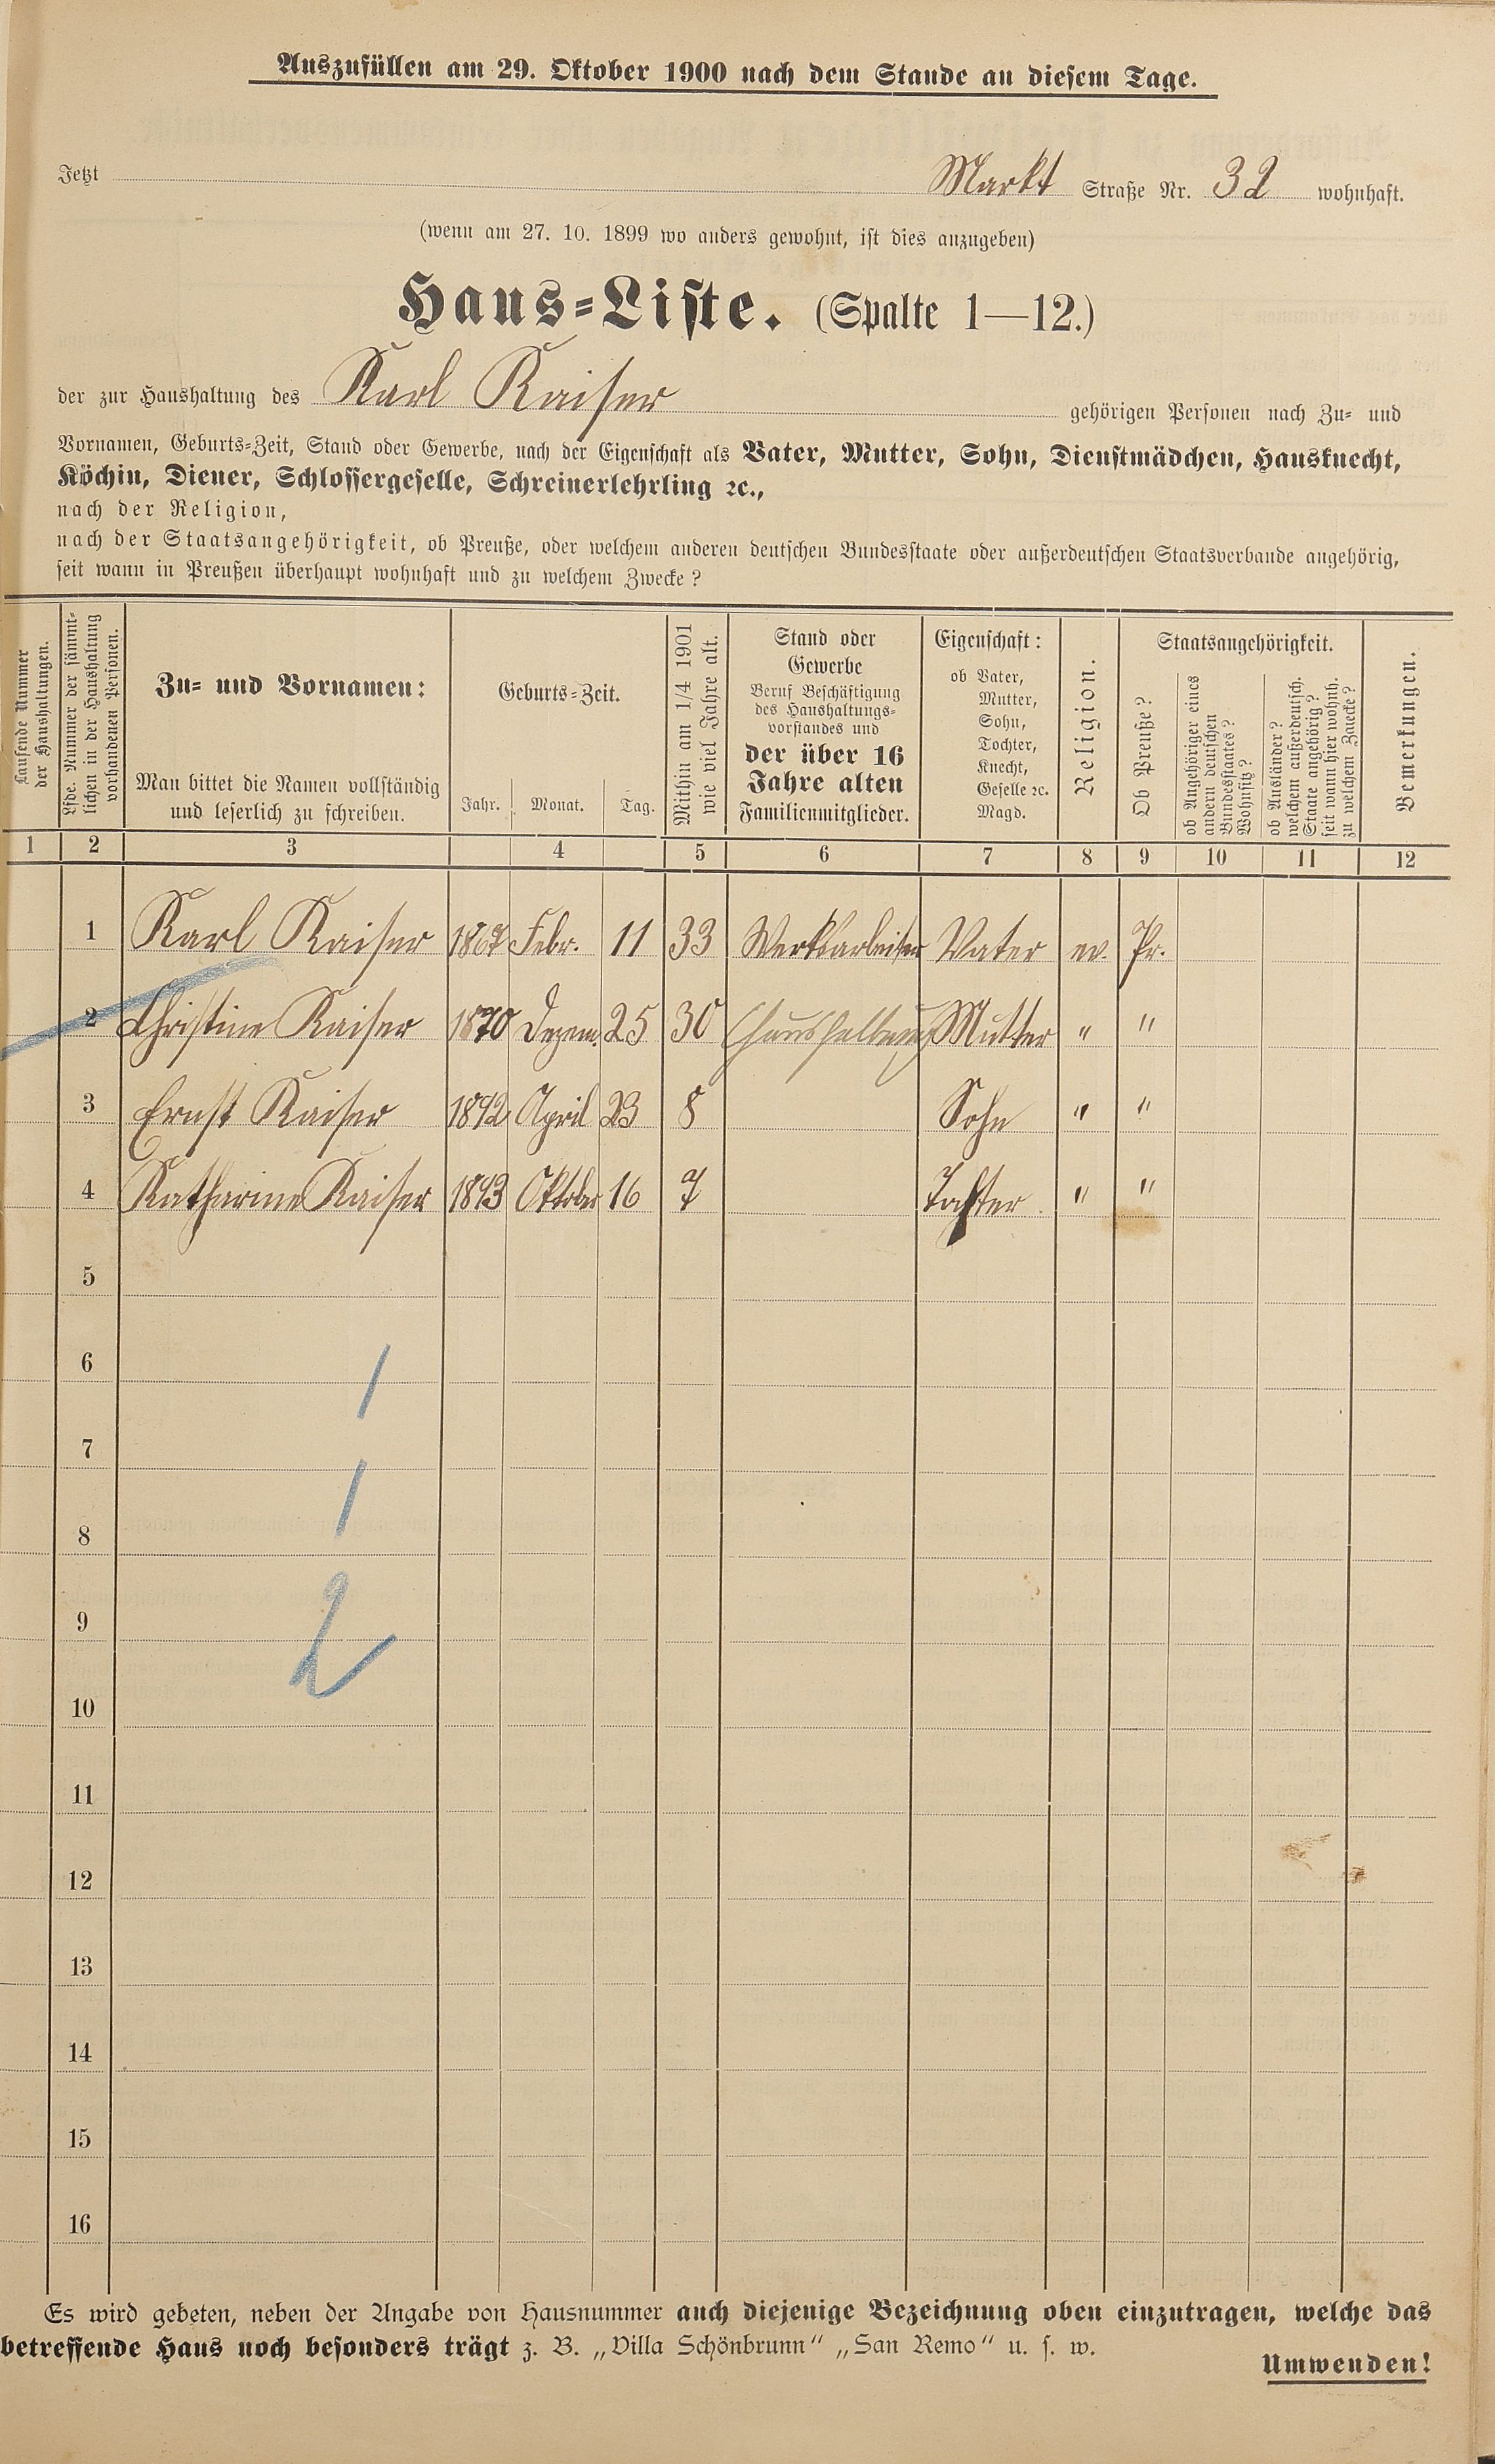 Auszufüllen am 29. Oktober 1900 nach dem Stande an diesem Tage.
Jetzt Markt Straße Nr. 32 wohnhaft.
(wenn am 27. 10. 1899 wo anders gewohnt, ist dies anzugeben)
Haus-Liste. (Spalte 1—12.)
der zur Haushaltung des Karl Kaiser gehörigen Personen nach Zu- und
Vornamen, Geburts-Zeit, Stand oder Gewerbe, nach der Eigenschaft als Vater, Mutter, Sohn, Dienstmädchen, Hausknecht,
Köchin, Diener, Schlossergeselle, Schreinerlehrling ꝛc.,
nach der Religion,
nach der Staatsangehörigkeit, ob Preuße, oder welchem anderen deutschen Bundesstaate oder außerdeutschen Staatsverbande angehörig,
seit wann in Preußen überhaupt wohnhaft und zu welchem Zwecke?
Laufende Nummer
der Haushaltungen.
Lfde. Nummer der sämmt-
lichen in der Haushaltung
vorhandenen Personen.
Zu- und Vornamen:
Man bittet die Namen vollständig
und leserlich zu schreiben.
Geburts-Zeit.
Jahr. Monat. Tag.
Mithin am 1/4 1901
wie viel Jahre alt.
Stand oder
Gewerbe
Beruf Beschäftigung
des Haushaltungs-
vorstandes und
der über 16
Jahre alten
Familienmitglieder.
Eigenschaft:
ob Vater,
Mutter,
Sohn,
Tochter,
Knecht,
Geselle ꝛc.
Magd.
Religion.
Staatsangehörigkeit.
Ob Preuße?
ob Angehöriger eines
andern deutschen
Bundesstaates?
Wohnsitz?
ob Ausländer?
welchem außerdeutsch.
Staate angehörig?
seit wann hier wohnh.
zu welchem Zwecke?
Bemerkungen.
1 2 3 4 5 6 7 8 9 10 11 12
1 Karl Kaiser 1867 Febr. 11 33 Werksarbeiter Vater ev. Pr.
2 Christine Kaiser 1870 Dezem. 25 30 Mutter " "
3 Ernst Kaiser 1892 April 23 8 Sohn " "
4 Katharine Kaiser 1893 Oktober 16 7 Tochter " "
5
6
7
8
9
10
11
12
13
14
15
16
1
1
2
Es wird gebeten, neben der Angabe von Hausnummer auch diejenige Bezeichnung oben einzutragen, welche das
betreffende Haus noch besonders trägt z. B. „Villa Schönbrunn“ „San Remo“ u. s. w.
Umwenden!